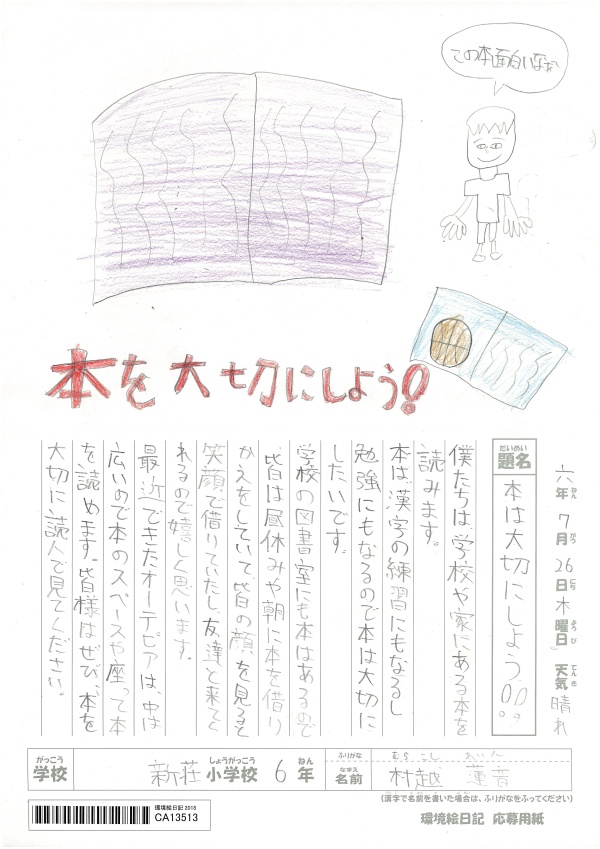 この本面白いなぁ
本を大切にしよう!
六年7月26日木曜日 天気 晴れ
ねん がつ にち ようび てんき
だいめい
題名 本は大切にしよう!!
僕たちは、学校や家にある本を
読みます。
本は、漢字の練習にもなるし
勉強にもなるので本は大切に
したいです。
学校の図書室にも本はあるので
皆は昼休みや朝に本を借り
かえをしていて、皆の顔を見ると
笑顔で借りていたし、友達と来てく
れるので嬉しく思います。
最近できたオーテピアは、中は
広いので本のスペースや座って本
を読めます。皆様はぜひ、本を
大切に読んで見てください。
がっこう しょうがっこう ねん
学校 新荘小学校 6年
ふりがな むらこし
なまえ
名前 村越 蓮音
(漢字で名前を書いた場合は、ふりがなをふってください)
環境絵日記 2018
CA13513
環境絵日記 応募用紙